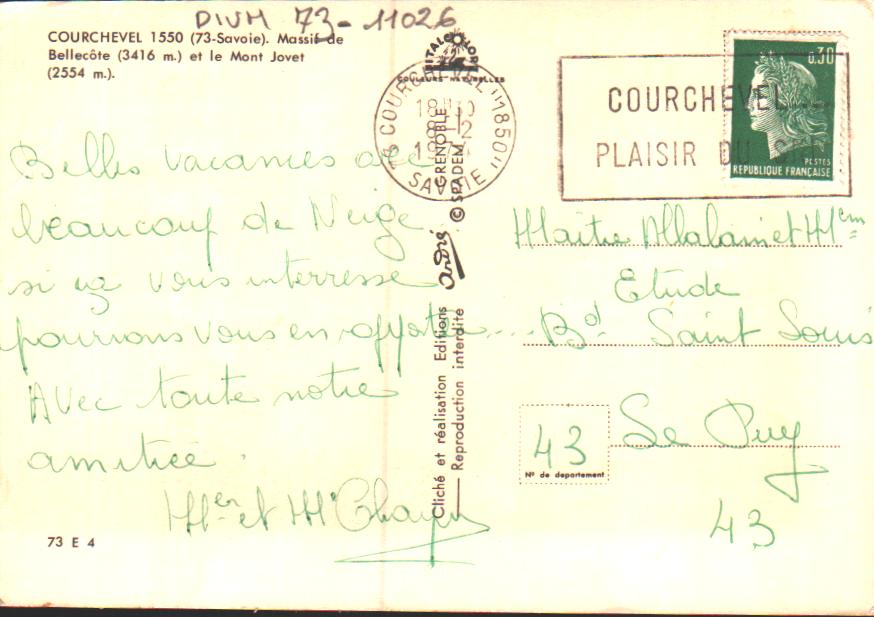 DIVM 73-11026
COURCHEVEL 1550 (73-Savoie). Massif de
Bellecôte (3416 m.) et le Mont Jovet
(2554 m.).
COULEURS NATURELLES
73 COURCHEVEL "1850"
18H
8-12
SAVOIE
COURCHEVEL
PLAISIR DU
0,30
POSTES
REPUBLIQUE FRANÇAISE
Belles vacances avec
beaucoup de Neige
si ça vous interresse
pourrons vous en apporter ....
Avec toute notre
amitiée.
et
73 E 4
Cliché et réalisation Editions andré GRENOBLE
Reproduction interdite © SPADEM
Maître et Mem
Etude
Bd Saint Louis
43 Le Puy
N° de departement
43